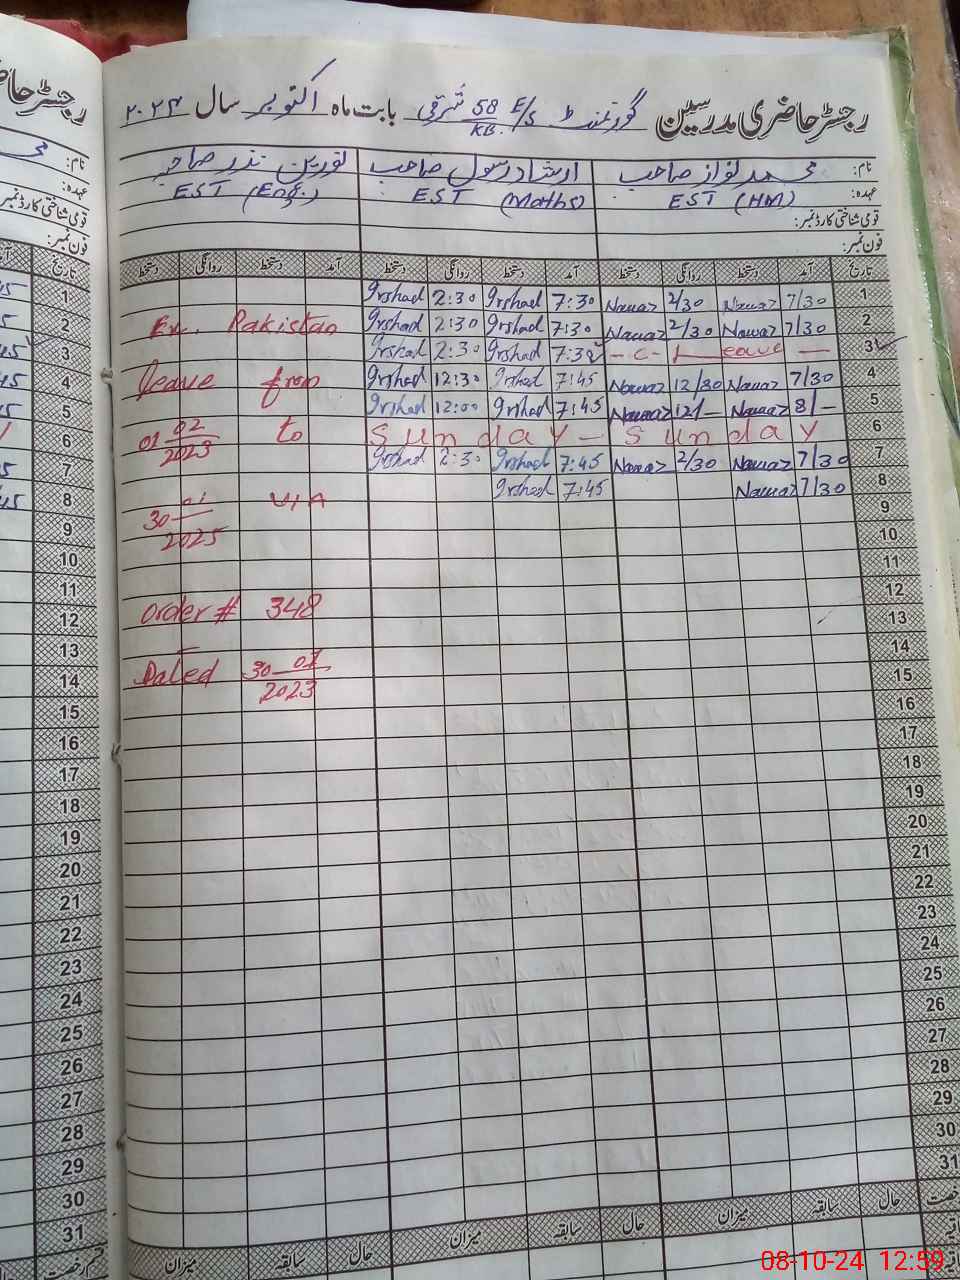 رجسٹر حاضری مدرسین گورنمنٹ E/S 58/KB شرقی بابت ماہ اکتوبر سال ۲۰۲۴
نام: محمد نواز صاحب ارشاد رسول صاحب نورین نذر صاحبہ
عہدہ: EST (HM) EST (Maths) EST (Eng.)
قومی شناختی کارڈ نمبر:
فون نمبر:
تاریخ آمد دستخط روانگی دستخط آمد دستخط روانگی دستخط آمد دستخط روانگی دستخط
1 7/30 Nawaz 2/30 Nawaz 7:30 Irshad 2:30 Irshad
2 7/30 Nawaz 2/30 Nawaz 7:30 Irshad 2:30 Irshad
3 - C - Leave — Irshad 2:30 Irshad
4 7/30 Nawaz 12/30 Nawaz 7:45 Irshad 12:30 Irshad
5 8/- Nawaz 12/- Nawaz 7:45 Irshad 12:00 Irshad
6 Sunday - Sunday
7 7/30 Nawaz 2/30 Nawaz 7:45 Irshad 2:30 Irshad
8 7/30 Nawaz 7:45 Irshad
9
10
11
12
13
14
15
16
17
18
19
20
21
22
23
24
25
26
27
28
29
30
31
Ex. Pakistan
leave from
01 02/2023 to
30 01/2025
Order # 348
Dated 30 01/2023
حال سابقہ میزان حال سابقہ میزان حال سابقہ میزان
نام:
عہدہ:
قومی شناختی کارڈ نمبر
فون نمبر:
تاریخ
1
2
3
4
5
6
7
8
9
10
11
12
13
14
15
16
17
18
19
20
21
22
23
24
25
26
27
28
29
30
31
08-10-24 12:59